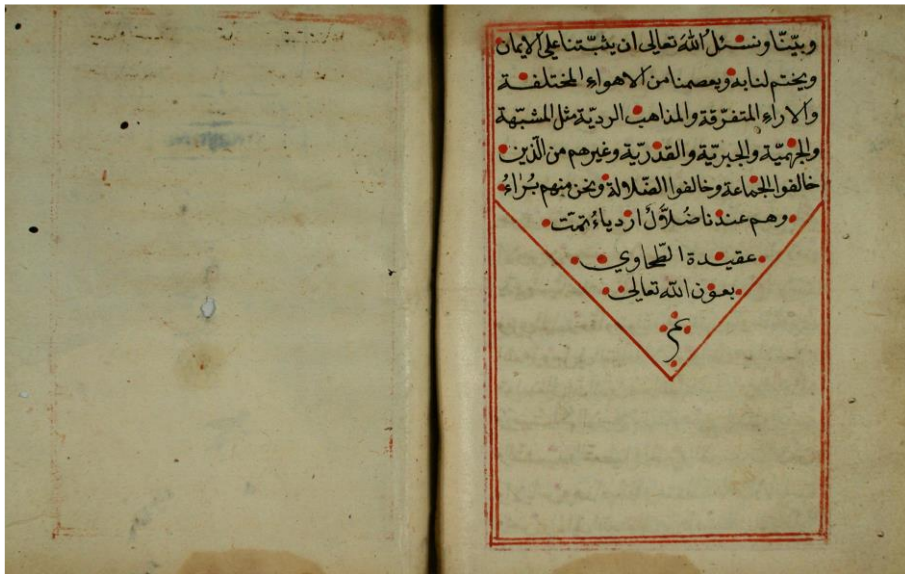 وبيّنّا ونسئل الله تعالى ان يثبّتنا على الايمان
ويختم لنا به ويعصمنا من الاهواء المختلفة
والاراء المتفرّقة والمذاهب الرديّة مثل المشبّهة
والجهميّة والجبريّة والقدريّة وغيرهم من الّذين
خالفوا الجماعة وخالفوا الضّلالة ونحن منهم برٰاءُ
وهم عندنا ضُلاّل ازدياءُ تمّت
عقيدة الطّحاوي
بعون الله تعالى
تم